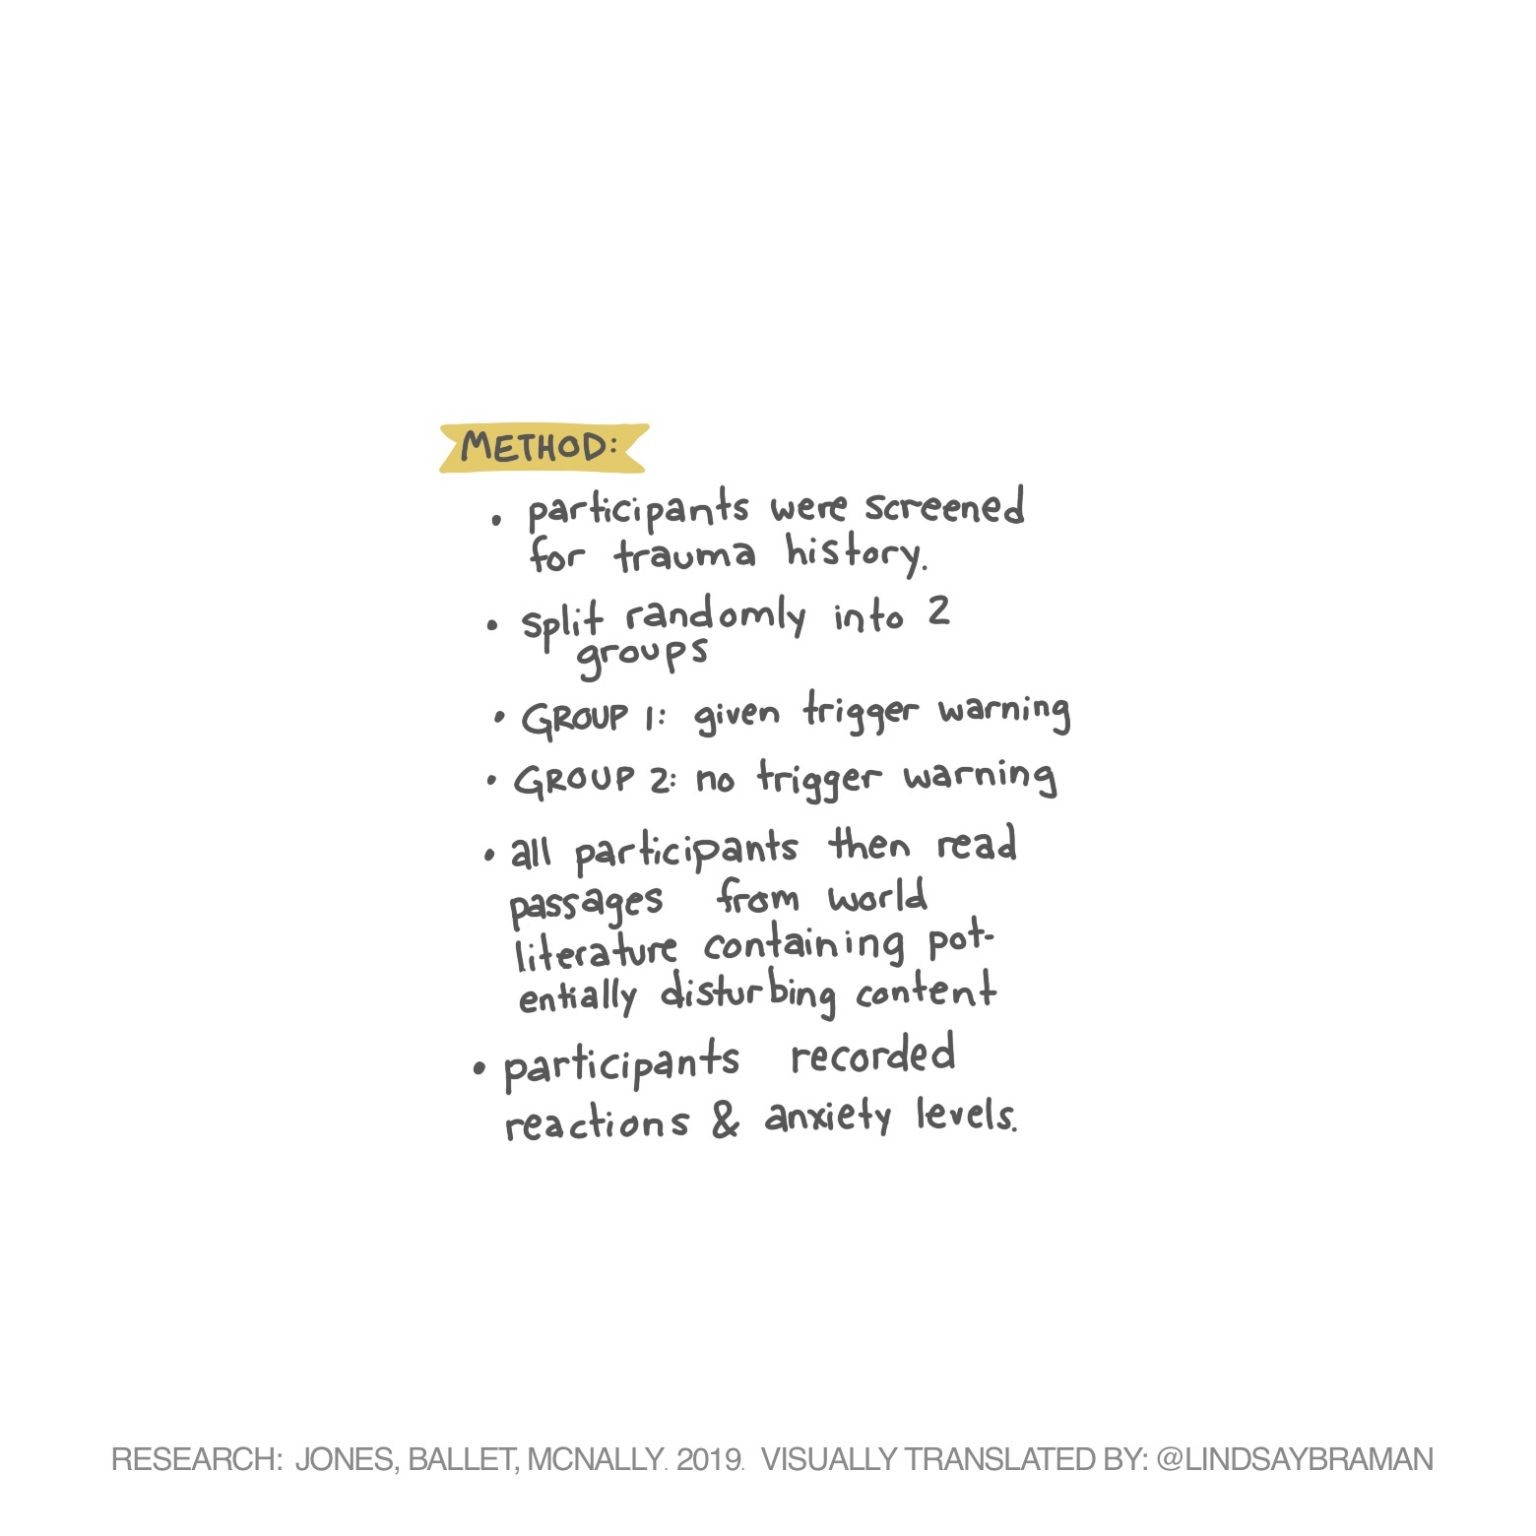 METHOD:
• participants were screened
for trauma history.
• split randomly into 2
groups
• GROUP 1: given trigger warning
• GROUP 2: no trigger warning
• all participants then read
passages from world
literature containing pot-
entially disturbing content
• participants recorded
reactions & anxiety levels.
RESEARCH: JONES, BALLET, MCNALLY. 2019. VISUALLY TRANSLATED BY: @LINDSAYBRAMAN